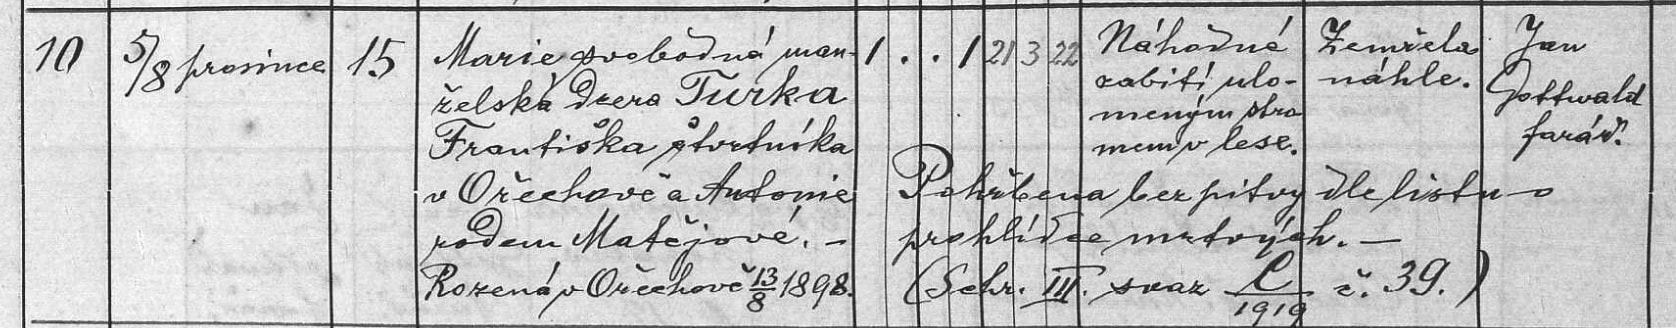 10 5/8 prosince 15 Marie svobodná man- 1 . . 1 21 3 22 Náhodné Zemřela Jan
želská dcera Turka zabití ulo- náhle. Gottwald
Františka čtvrtníka meným stro farář.
mem v lese.
v Ořechově a Antonie Pohřbena bez pitvy dle listu o
rodem Matějové. — prohlídce mrtvých. —
Rozená v Ořechově 13/8 1898. (Schr. III. svaz L/1919 č. 39.)